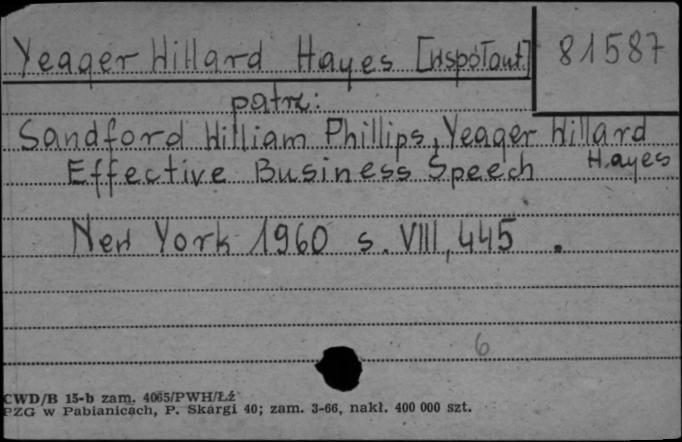 Yeager Willard Hayes [współaut]
81587
patrz:
Sandford William Phillips, Yeager Willard
Hayes
Effective Business Speech
New York 1960 s. VIII, 445 .
6
CWD/B 15-b zam. 4065/PWH/Łź
PZG w Pabianicach, P. Skargi 40; zam. 3-66, nakł. 400 000 szt.